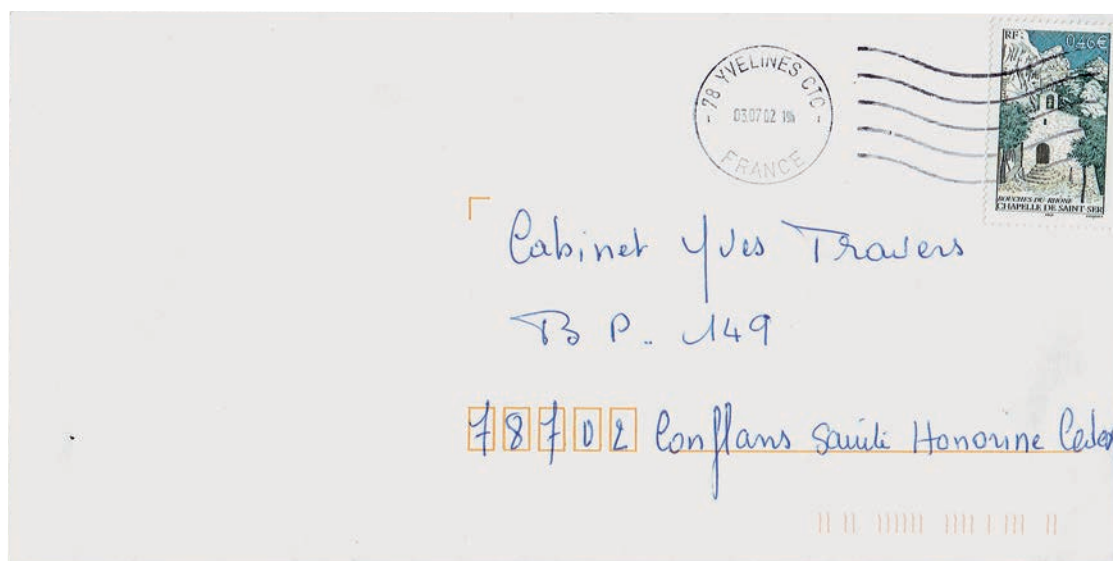 78 YVELINES CTC
03.07.02
FRANCE
RF 0,46€
BOUCHES DU RHÔNE
CHAPELLE DE SAINT SER
Cabinet Yves Travers
B P.. 149
78702 Conflans Sainte Honorine Cedex